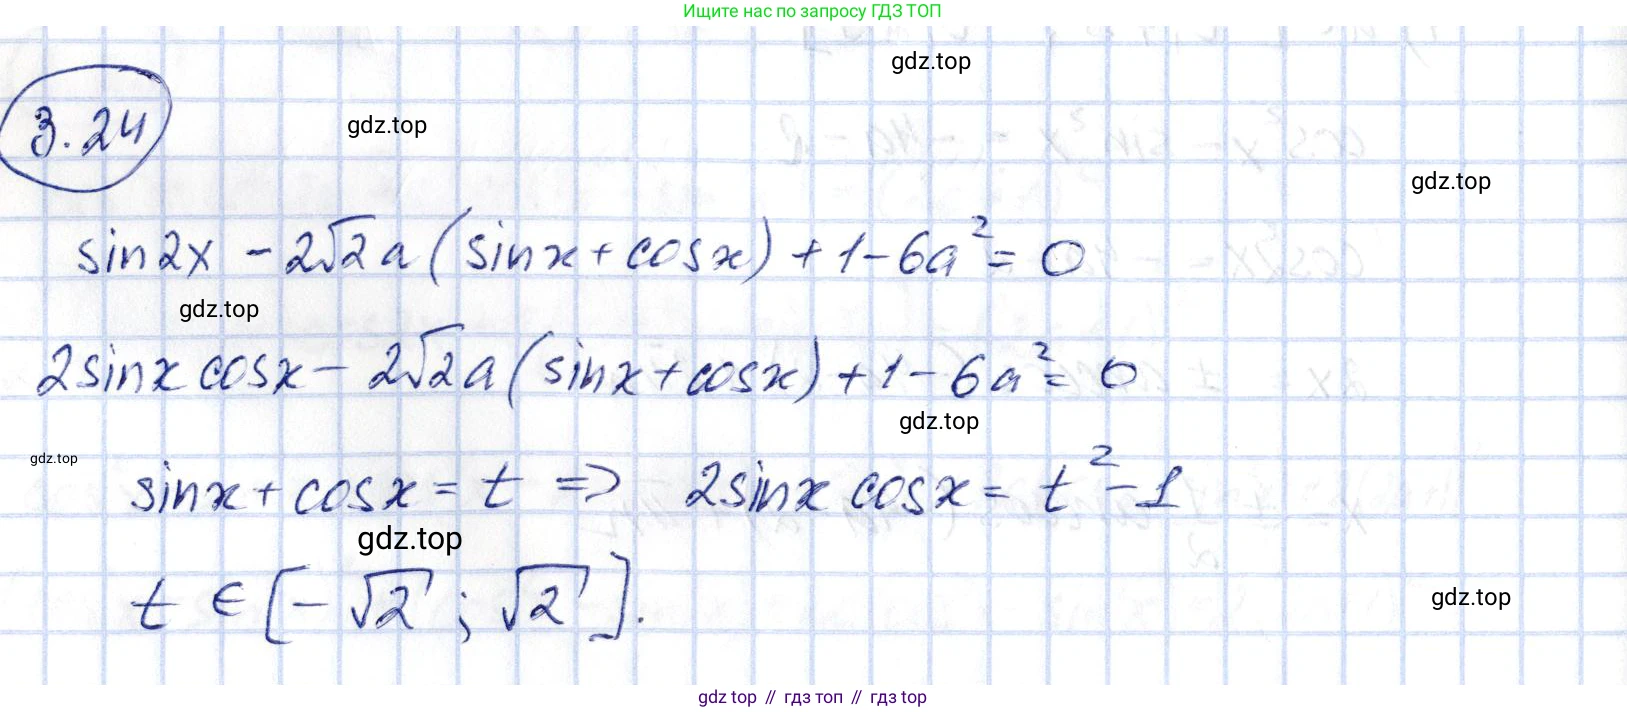 Ищите нас по запросу ГДЗ ТОП
gdz.top
3.24
gdz.top
gdz.top
sin2x - 2√2a(sinx+cosx)+1-6a²=0
gdz.top
2sinx cosx - 2√2a(sinx+cosx)+1-6a²=0
gdz.top
gdz.top
sinx+cosx=t => 2sinx cosx = t²-1
gdz.top
t ∈ [-√2; √2].
gdz.top
gdz top // гдз топ // гдз top